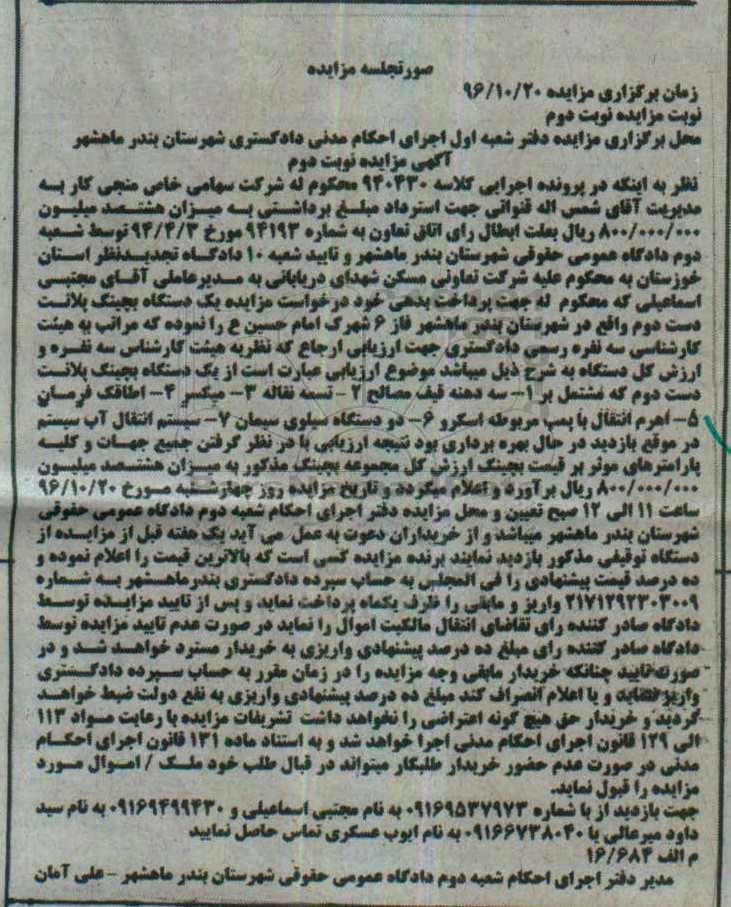 صورتجلسه مزایده
زمان برگزاری مزایده ۹۶/۱۰/۲۰
نوبت مزایده نوبت دوم
محل برگزاری مزایده دفتر شعبه اول اجرای احکام مدنی دادگستری شهرستان بندر ماهشهر
آگهی مزایده نوبت دوم
نظر به اینکه در پرونده اجرایی کلاسه ۹۴۰۴۳۰ محکوم له شرکت سهامی خاص منجی کار به
مدیریت آقای شمس اله قنواتی جهت استرداد مبلغ برداشتی به میزان هشتصد میلیون
۸۰۰/۰۰۰/۰۰۰ ریال بعلت ابطال رای اتاق تعاون به شماره ۹۴۱۹۳ مورخ ۹۴/۴/۳ توسط شعبه
دوم دادگاه عمومی حقوقی شهرستان بندر ماهشهر و تایید شعبه ۱۰ دادگاه تجدیدنظر استان
خوزستان به محکوم علیه شرکت تعاونی مسکن شهدای دریابانی به مدیرعاملی آقای مجتبی
اسماعیلی که محکوم له جهت پرداخت بدهی خود درخواست مزایده یک دستگاه بچینگ پلانت
دست دوم واقع در شهرستان بندر ماهشهر فاز ۶ شهرک امام حسین ع را نموده که مراتب به هیئت
کارشناسی سه نفره رسمی دادگستری جهت ارزیابی ارجاع که نظریه هیئت کارشناس سه نفره و
ارزش کل دستگاه به شرح ذیل میباشد موضوع ارزیابی عبارت است از یک دستگاه بچینگ پلانت
دست دوم که مشتمل بر ۱- سه دهنه قیف مصالح ۲- تسمه نقاله ۳- میکسر ۴- اطاقک فرمان
۵- اهرم انتقال با پمپ مربوطه اسکرو ۶- دو دستگاه سیلوی سیمان ۷- سیستم انتقال آب سیستم
در موقع بازدید در حال بهره برداری بود نتیجه ارزیابی با در نظر گرفتن جمیع جهات و کلیه
پارامترهای موثر بر قیمت بچینگ ارزش کل مجموعه بچینگ مذکور به میزان هشتصد میلیون
۸۰۰/۰۰۰/۰۰۰ ریال برآورد و اعلام میگردد و تاریخ مزایده روز چهارشنبه مورخ ۹۶/۱۰/۲۰
ساعت ۱۱ الی ۱۲ صبح تعیین و محل مزایده دفتر اجرای احکام شعبه دوم دادگاه عمومی حقوقی
شهرستان بندر ماهشهر میباشد و از خریداران دعوت به عمل می آید یک هفته قبل از مزایده از
دستگاه توقیفی مذکور بازدید نمایند برنده مزایده کسی است که بالاترین قیمت را اعلام نموده و
ده درصد قیمت پیشنهادی را فی المجلس به حساب سپرده دادگستری بندرماهشهر به شماره
۲۱۷۱۲۹۲۳۰۳۰۰۹ واریز و مابقی را ظرف یکماه پرداخت نماید و پس از تایید مزایده توسط
دادگاه صادر کننده رای تقاضای انتقال مالکیت اموال را نماید در صورت عدم تایید مزایده توسط
دادگاه صادر کننده رای مبلغ ده درصد پیشنهادی واریزی به خریدار مسترد خواهد شد و در
صورت تایید چنانکه خریدار مابقی وجه مزایده را در زمان مقرر به حساب سپرده دادگستری
واریز ننماید و یا اعلام انصراف کند مبلغ ده درصد پیشنهادی واریزی به نفع دولت ضبط خواهد
گردید و خریدار حق هیچ گونه اعتراضی را نخواهد داشت تشریفات مزایده با رعایت مواد ۱۱۳
الی ۱۲۹ قانون اجرای احکام مدنی اجرا خواهد شد و به استناد ماده ۱۳۱ قانون اجرای احکام
مدنی در صورت عدم حضور خریدار طلبکار میتواند در قبال طلب خود ملک / اموال مورد
مزایده را قبول نماید.
جهت بازدید از با شماره ۰۹۱۶۹۵۳۷۹۷۳ به نام مجتبی اسماعیلی و ۰۹۱۶۹۴۹۹۴۳۰ به نام سید
داود میرعالی یا ۰۹۱۶۶۷۳۸۰۴۰ به نام ایوب عسکری تماس حاصل نمایید
م الف ۱۶/۶۸۴
مدیر دفتر اجرای احکام شعبه دوم دادگاه عمومی حقوقی شهرستان بندر ماهشهر - علی آمان